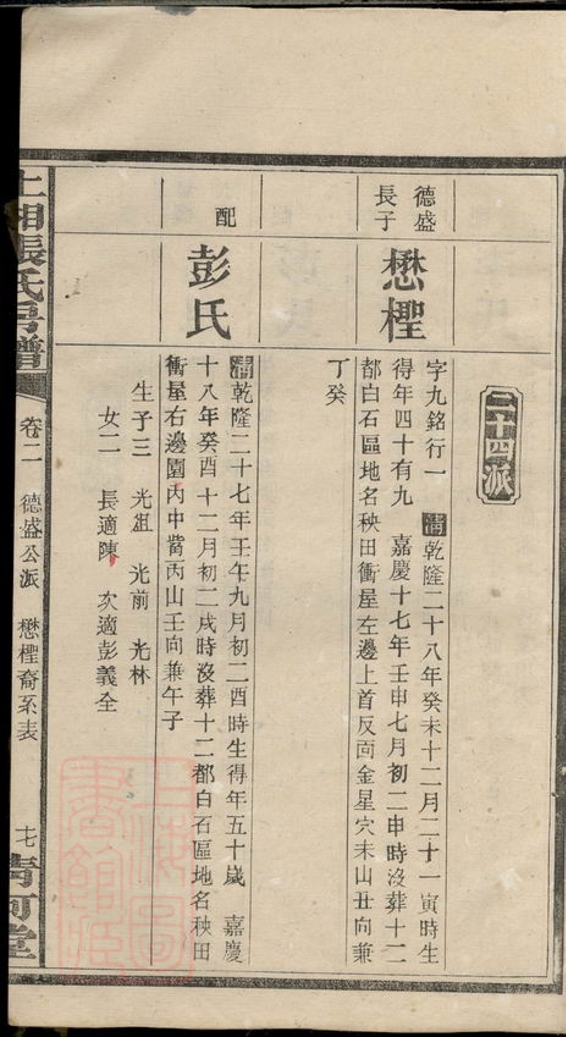 二十四派
德盛
長子
懋檉
字九銘行一　清乾隆二十八年癸未十二月二十一寅時生
得年四十有九　嘉慶十七年壬申七月初二申時沒葬十二
都白石區地名秧田衝屋左邊上首反面金星穴未山丑向兼
丁癸
配
彭氏
清乾隆二十七年壬午九月初二酉時生得年五十歲　嘉慶
十八年癸酉十二月初二戌時沒葬十二都白石區地名秧田
衝屋右邊園內中嘴丙山壬向兼午子
生子三　光䘵　光前　光林
女二　長適陳　次適彭義全
上湘張氏房譜
卷二　德盛公派　懋檉裔系表
十七
清河堂